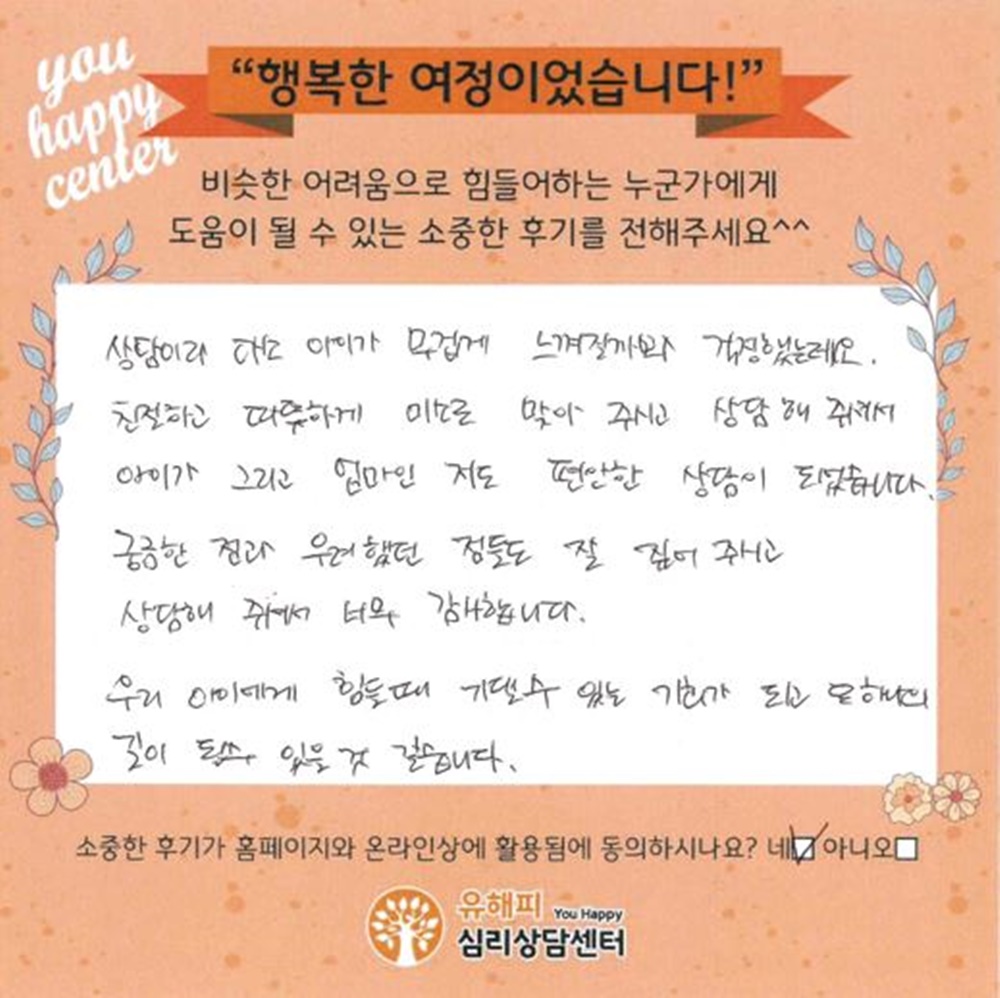 you
happy
center
“행복한 여정이었습니다!”
비슷한 어려움으로 힘들어하는 누군가에게
도움이 될 수 있는 소중한 후기를 전해주세요^^
상담이라 해도 아이가 무겁게 느껴질까봐 걱정했는데요.
친절하고 따뜻하게 미소로 맞아 주시고 상담해 줘서
아이가 그리고 엄마인 저도 편안한 상담이 되었습니다.
궁금한 점과 우려했던 점들도 잘 짚어 주시고
상담해 줘서 너무 감사합니다.
우리 아이에게 힘들때 기댈수 있는 기회가 되고 또 하나의
길이 될수 있을 것 같습니다.
소중한 후기가 홈페이지와 온라인상에 활용됨에 동의하시나요? 네☑ 아니오□
유해피 You Happy
심리상담센터